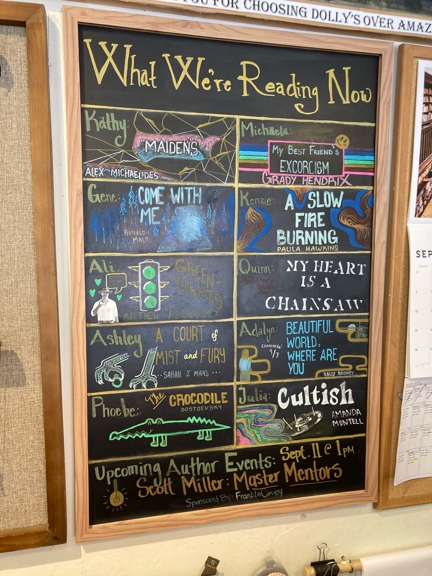 YOU FOR CHOOSING DOLLY'S OVER AMAZ
What We're Reading Now
Kathy:
MAIDENS
ALEX MICHAELIDES
Michaela:
My Best Friend's
EXCORLISM
GRADY HENDRIX
Gene:
COME WITH
ME
RONALD
MALFI
Kenzie:
A SLOW
FIRE
BURNING
PAULA HAWKINS
Ali:
GREEN-
LIGHTS
MATTHEW
Quinn:
MY HEART
IS A
CHAINSAW
Ashley
A COURT of
MIST and FURY
SARAH J MAAS
Adalyn:
COMING
9/7
BEAUTIFUL
WORLD,
WHERE ARE
YOU
SALLY ROONEY
Phoebe:
The CROCODILE
DOSTOEVSKY
Julia:
Cultish
AMANDA
MONTELL
Upcoming Author Events: Sept. 11 @ 1 PM
Scott Miller: Master Mentors
Sponsored By: FranklinCovey
SEP